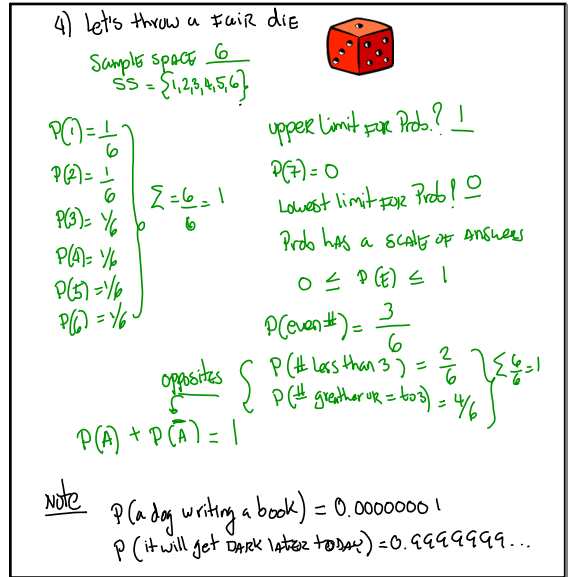 4) Let's throw a FAIR DIE
Sample space 6
SS = {1,2,3,4,5,6}
P(1) = 1/6
P(2) = 1/6
P(3) = 1/6
P(4) = 1/6
P(5) = 1/6
P(6) = 1/6
Σ = 6/6 = 1
upper limit FOR Prob.? 1
P(7) = 0
Lowest limit FOR Prob? 0
Prob HAS a SCALE OF ANSWERS
0 ≤ P(E) ≤ 1
P(even #) = 3/6
opposites
P(# Less than 3) = 2/6
P(# greather or = to 3) = 4/6
Σ 6/6 = 1
P(A) + P(A̅) = 1
Note
P(a dog writing a book) = 0.00000001
P(it will get DARK later TODAY) = 0.9999999...